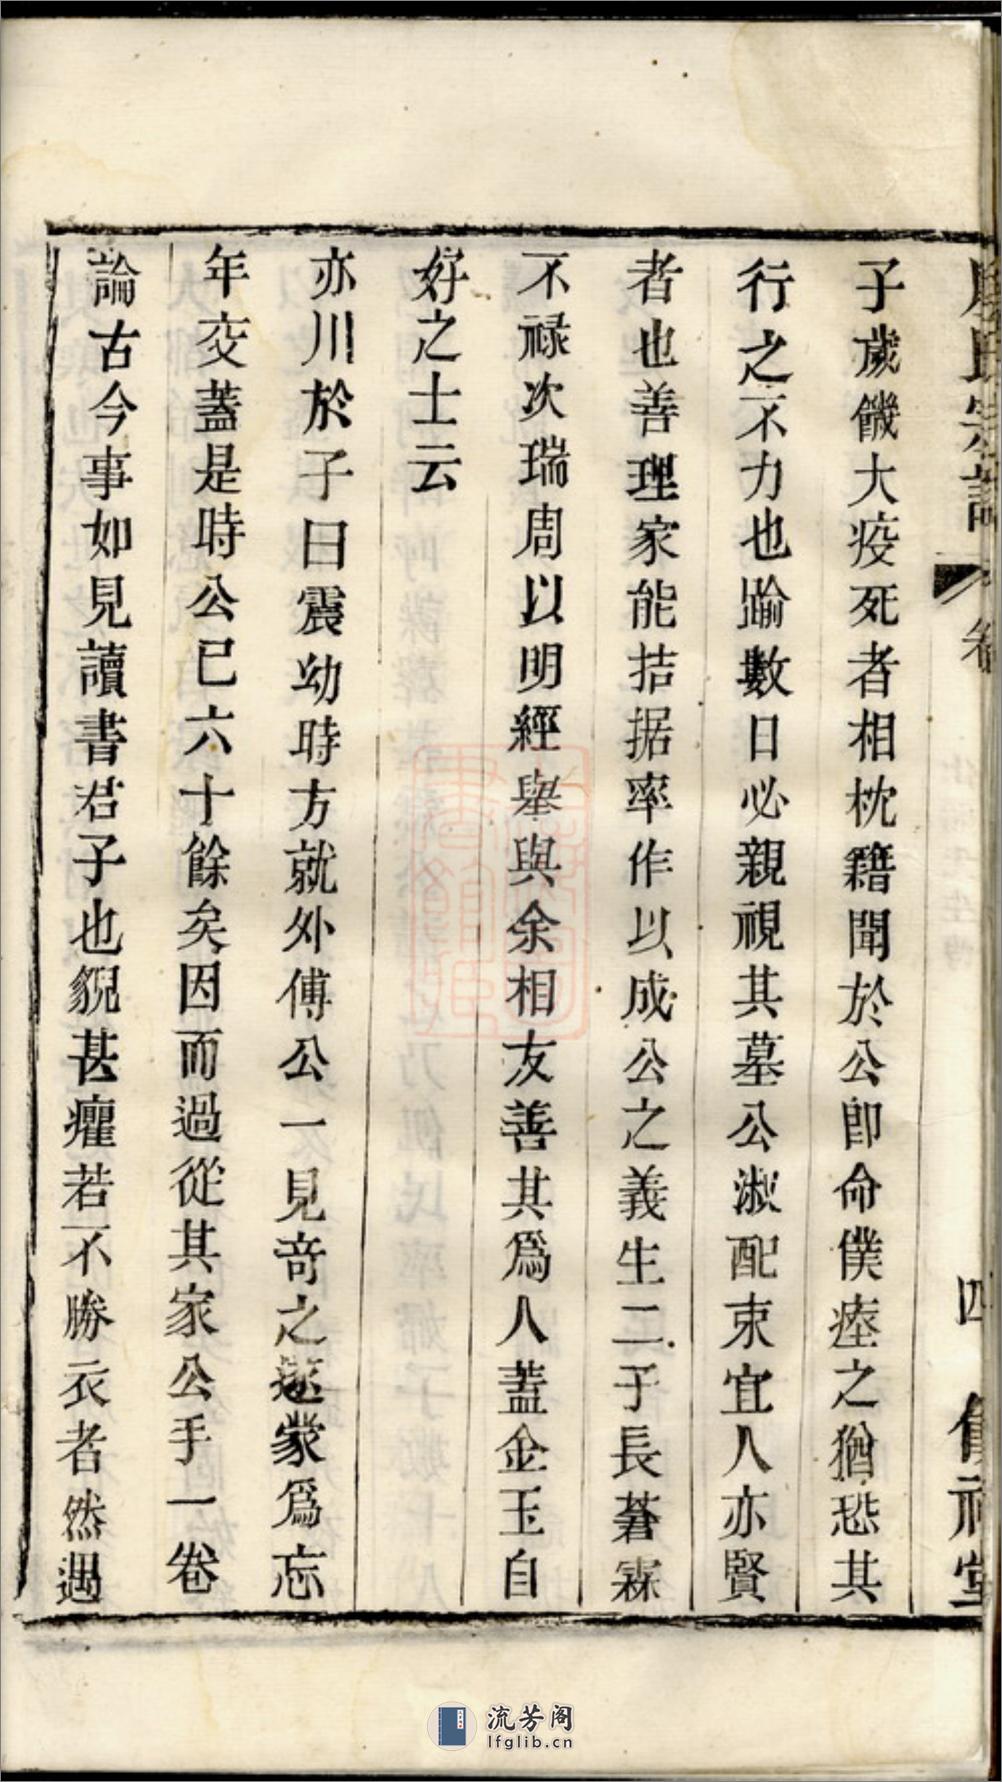 氏宗譜 卷 四
子歲饑大疫死者相枕籍聞於公卽命僕瘞之猶恐其
行之不力也踰數日必親視其墓公淑配束宜人亦賢
者也善理家能拮据率作以成公之義生二子長蒼霖
不祿次瑞周以明經舉與余相友善其爲人蓋金玉自
好之士云
亦川於子曰震幼時方就外傅公一見奇之遂蒙爲忘
年交蓋是時公已六十餘矣因而過從其家公手一卷
論古今事如見讀書君子也貌甚癯若不勝衣者然遇
流芳阁
lfglib.cn